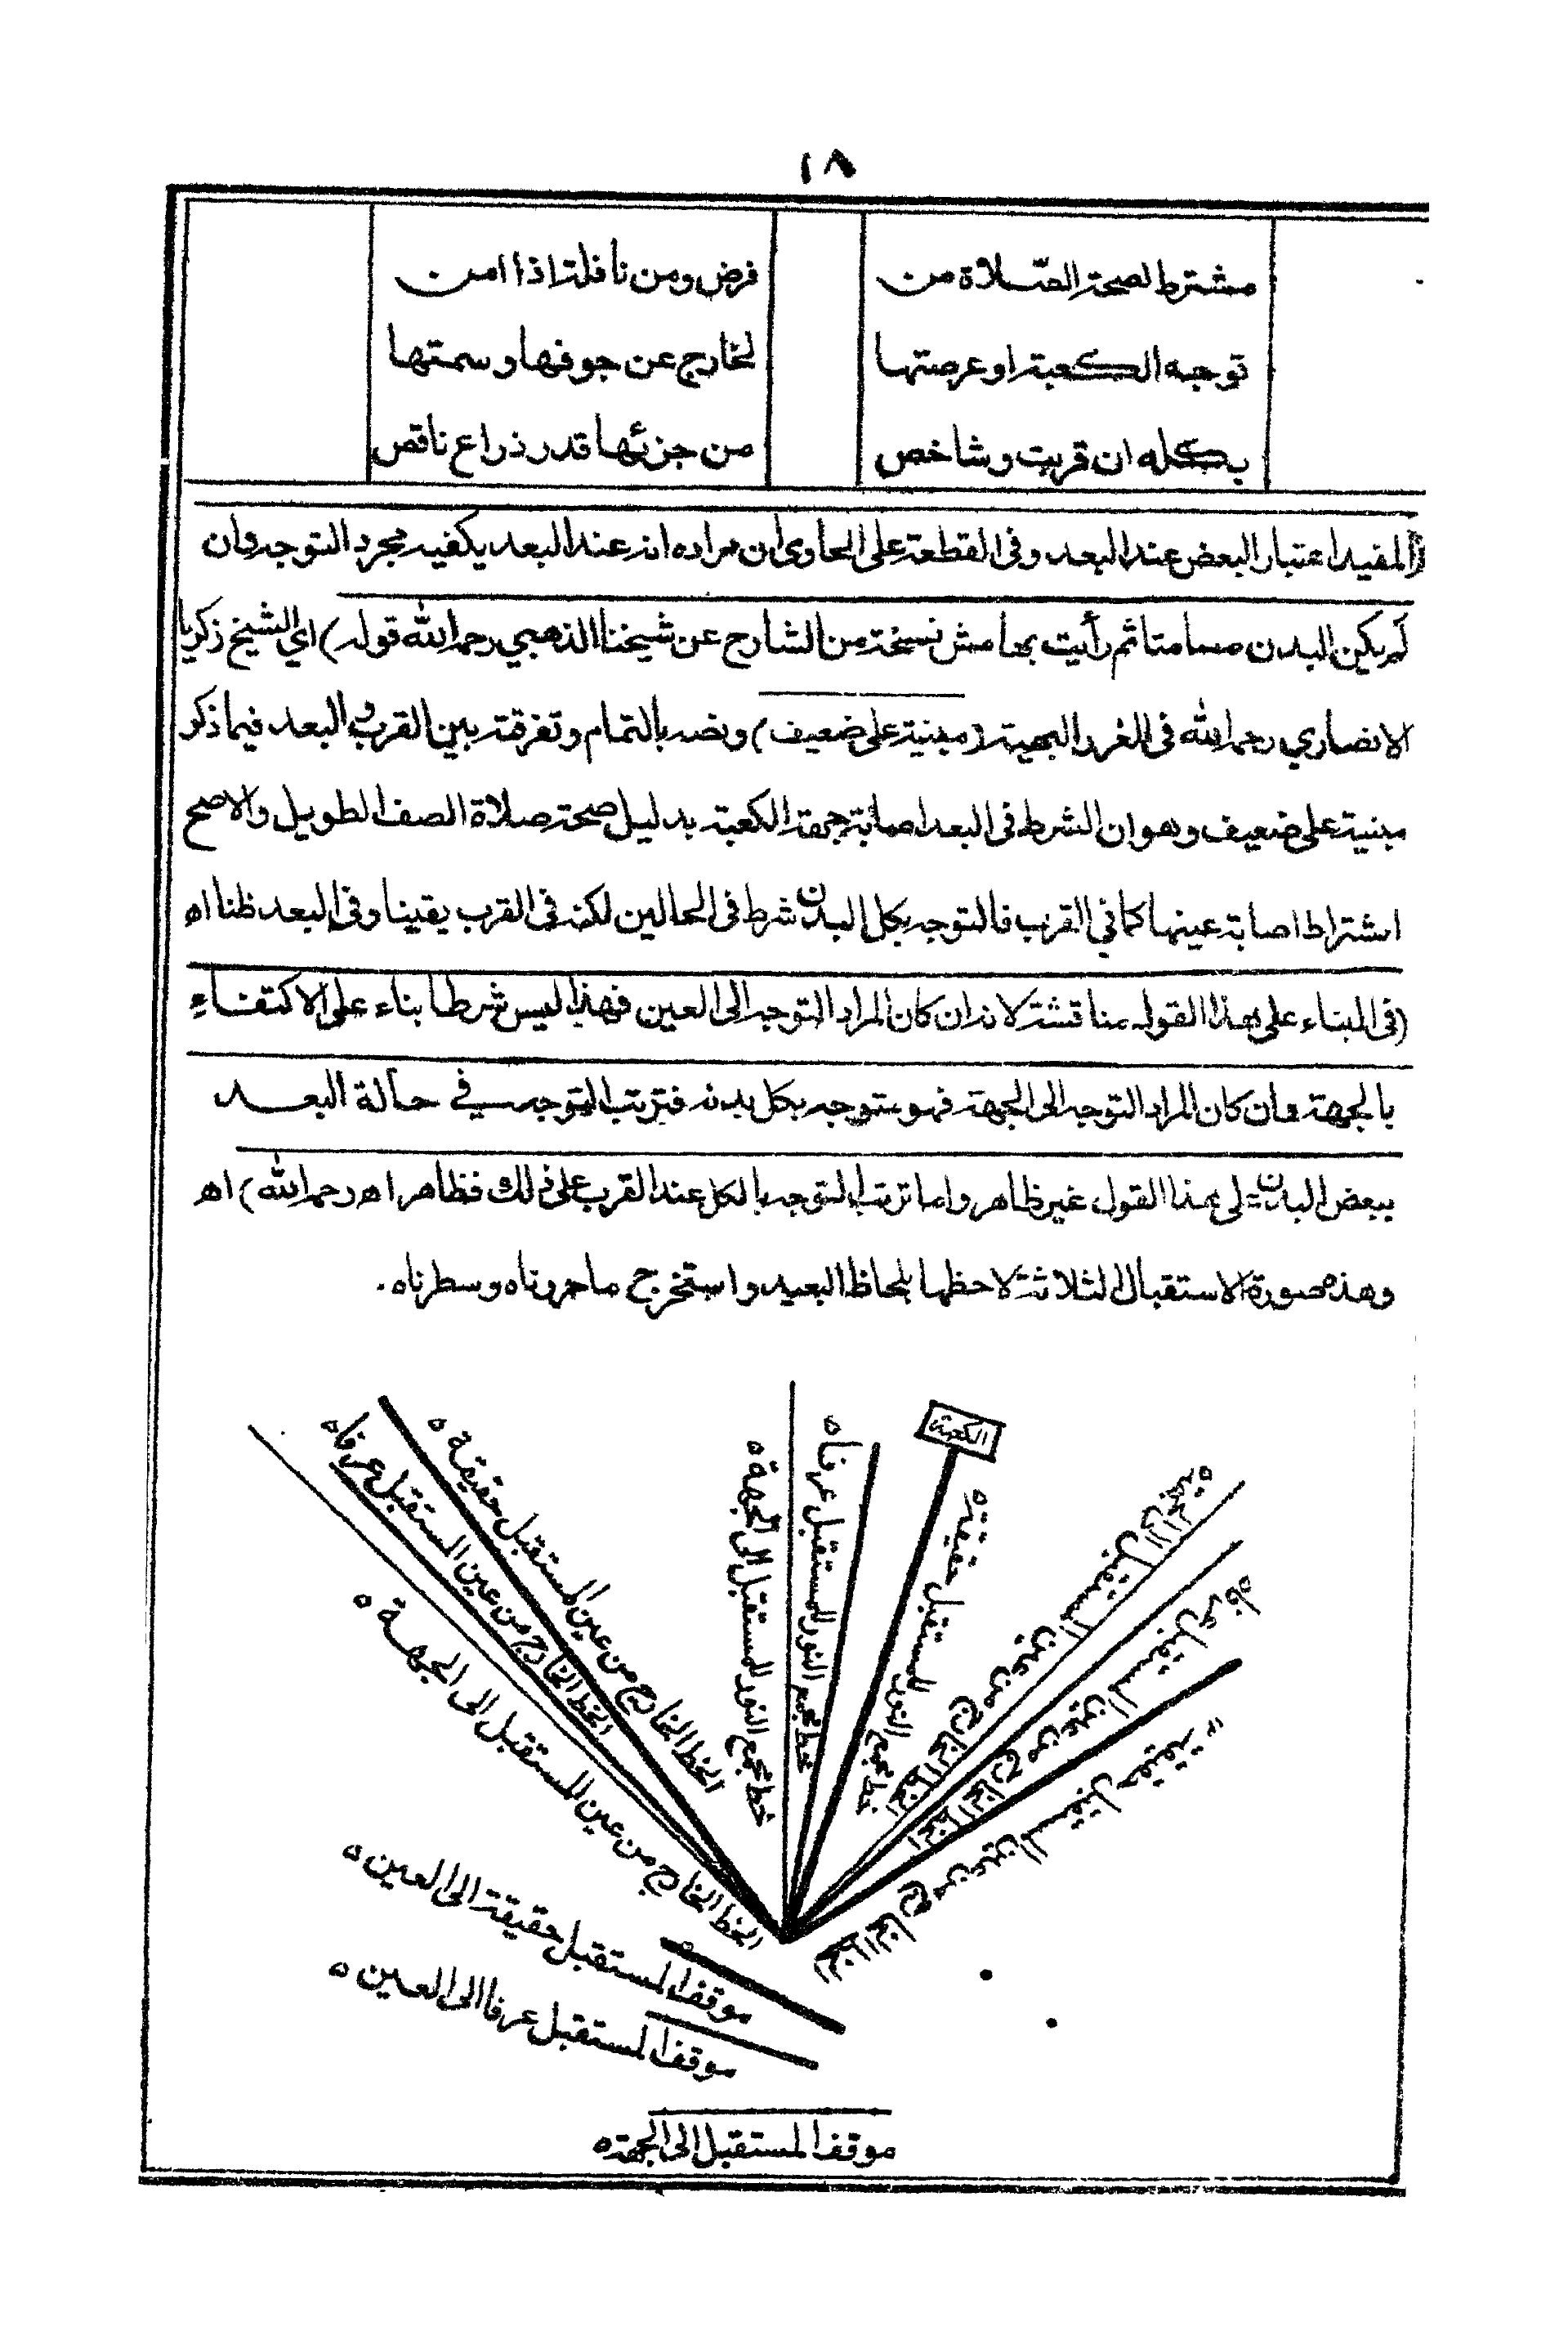 ١٨
مشترط لصحة الصّلاة من
فرض ومن نافلة اذا امن
توجه الكعبة او عرصتها
لخارج عن جوفها وسمتها
بكله ان قربت وشاخص
من جزئها قدر ذراع ناقص
المفيد اعتبار البعض عند البعد وفى القطعة على الحاوى ان مراده انه عند البعد يكفيه مجرد التوجه وان
لم يكن البدن مسامتا ثم رأيت بهامش نسخة من الشارح عن شيخنا الذهبي رحمه الله قوله ) اي الشيخ زكريا
الانصاري رحمه الله فى الغرر البهية ( مبنية على ضعيف ) ونصه بالتمام وتفرقته بين القرب والبعد فيما ذكر
مبنية على ضعيف وهو ان الشرط فى البعد اصابة جهة الكعبة بدليل صحة صلاة الصف الطويل والاصح
اشتراط اصابة عينها كما في القرب فالتوجه بكل البدن شرط فى الحالين لكنه فى القرب يقينا وفى البعد ظنا اه
( فى البناء على هذا القول مناقشة لانه ان كان المراد التوجه الى العين فهذا ليس شرطا بناء على الاكتفاء
بالجهة وان كان المراد التوجه الى الجهة فهو متوجه بكل بدنه فترتب التوجه في حالة البعد
ببعض البدن على هذا القول غير ظاهر واما ترتب التوجه بالكل عند القرب على ذلك فظاهر اه رحمه الله ) اه
وهذه صورة الاستقبال الثلاثة لاحظها بلحاظ البعيد واستخرج ما حررناه وسطرناه .
الكعبة
الخط الخارج من عين المستقبل الى الجهة ه
الخط الخارج من عين المستقبل عرفا ه
الخط الخارج من عين المستقبل حقيقة
خط مجمع النور للمستقبل حقيقة ه
خط مجمع النور للمستقبل عرفا ه
خط مجمع النور للمستقبل الى الجهة ه
الخط الخارج من عين المستقبل حقيقة ه
الخط الخارج من عين المستقبل عرفا ه
الخط الخارج من عين المستقبل الى الجهة ه
موقف المستقبل حقيقة الى العين ه
موقف المستقبل عرفا الى العين ه
موقف المستقبل الى الجهة ه